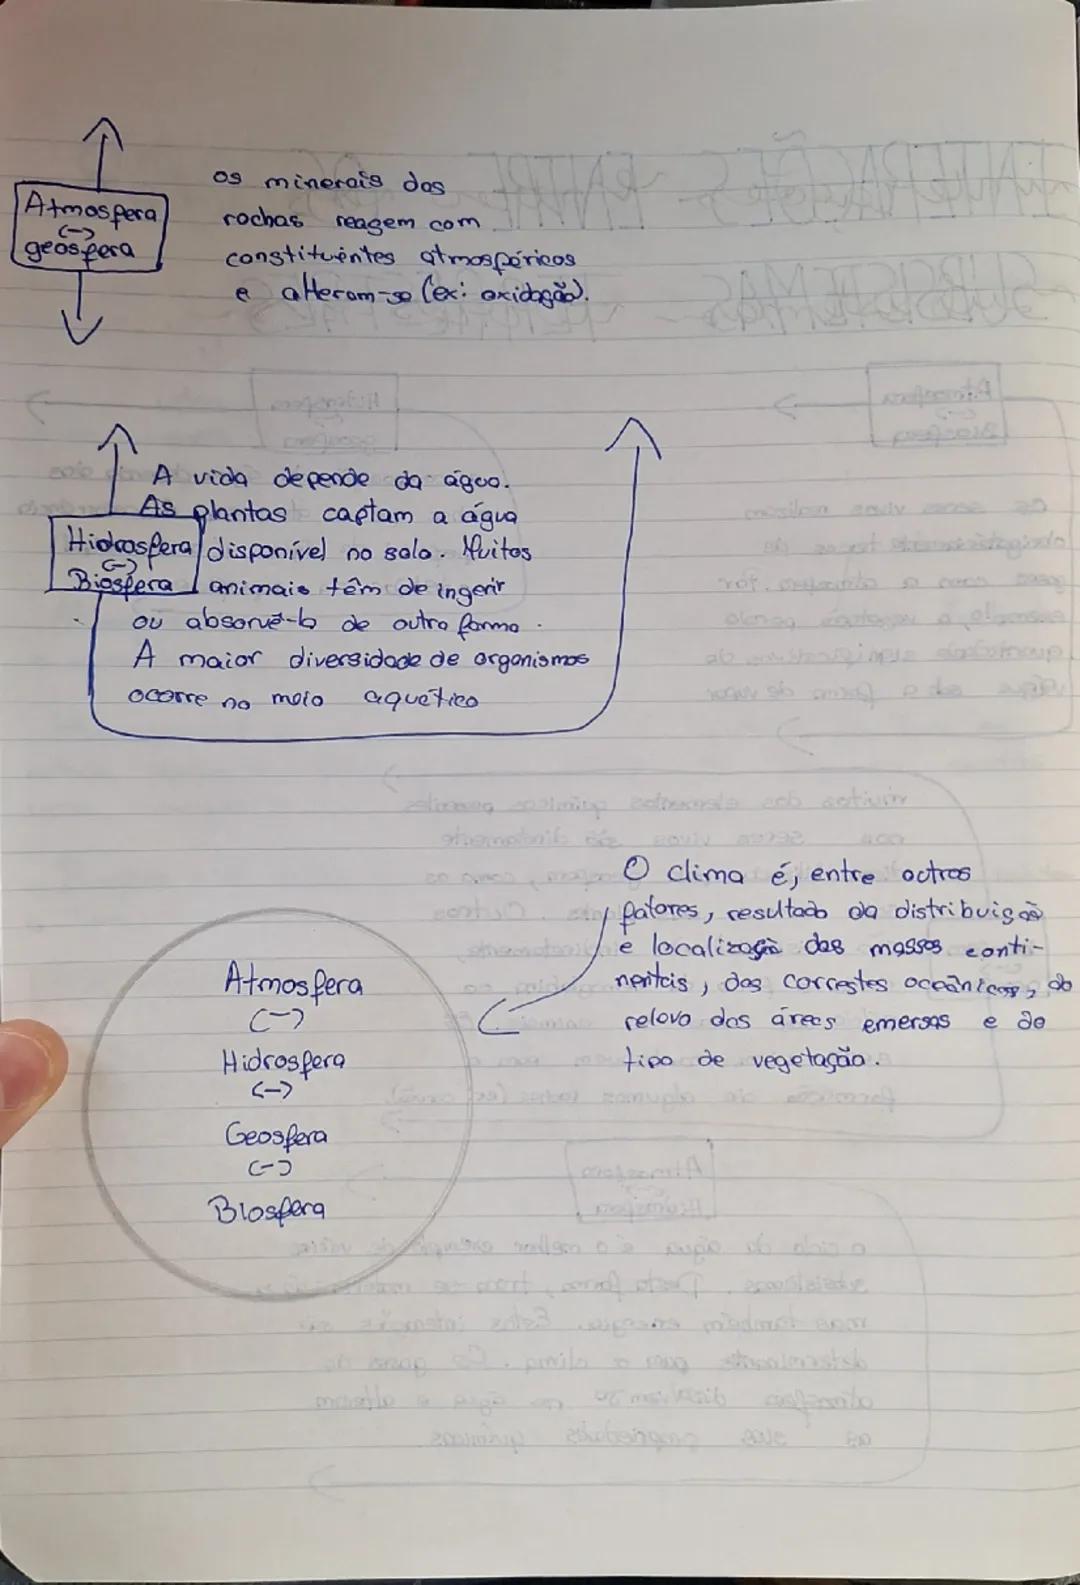 Atmosfera
<->
geosfera
os minerais das
rochas reagem com
constituintes atmosféricos
e alteram-se (ex: oxidação).
A vida depende da água.
As plantas captam a água
disponível no solo. Muitos
animais têm de ingerir
ou absorvê-la de outra forma.
A maior diversidade de organismos
ocorre no meio aquático
Hidrosfera
<->
Biosfera
O clima é, entre outros
fatores, resultado da distribuição
e localização das massas conti-
nentais, das correstes oceânicas, do
relevo das áreas emersas e do
tipo de vegetação.
Atmosfera
<->
Hidrosfera
<->
Geosfera
<->
Biosfera